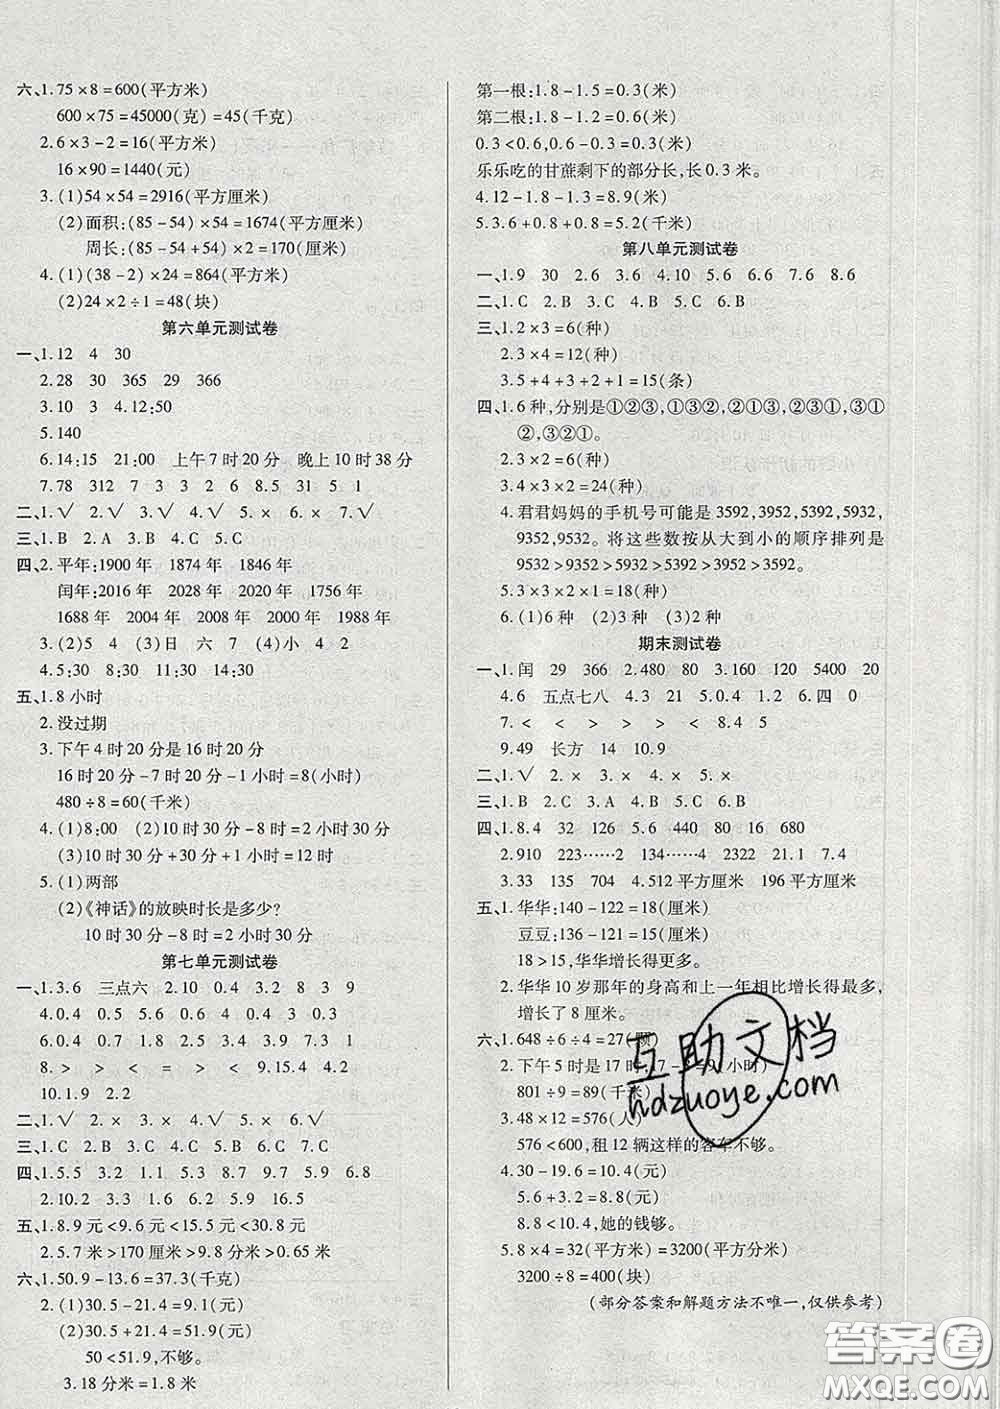 六、1.75×8=600(平方米)
600×75=45000(克)=45(千克)
2.6×3-2=16(平方米)
16×90=1440(元)
3.(1)54×54=2916(平方厘米)
(2)面积:(85-54)×54=1674(平方厘米)
周长:(85-54+54)×2=170(厘米)
4.(1)(38-2)×24=864(平方厘米)
(2)24×2÷1=48(块)
第六单元测试卷
一、1.12 4 30
2.28 30 365 29 366
3.10 3 4.12:50
5.140
6.14:15 21:00 上午7时20分 晚上10时38分
7.78 312 7 3 3 2 6 8.5 31 5 1
二、1.√ 2.√ 3.√ 4.√ 5.× 6.× 7.√
三、1.B 2.A 3.B 4.C 5.C
四、2.平年:1900年 1874年 1846年
闰年:2016年 2028年 2020年 1756年
1688年 2004年 2008年 2000年 1988年
3.(2)5 4 (3)日 六 7 (4)小 4 2
4.5:30 8:30 11:30 14:30
五、1.8小时
2.没过期
3.下午4时20分是16时20分
16时20分-7时20分-1小时=8(小时)
480÷8=60(千米)
4.(1)8:00 (2)10时30分-8时=2小时30分
(3)10时30分+30分+1小时=12时
5.(1)两部
(2)《神话》的放映时长是多少?
10时30分-8时=2小时30分
第七单元测试卷
一、1.3.6 三点六 2.10 0.4 3.2 8 3 9
4.0.4 0.5 5.6 0.4 3 0.3
6.0.1 0.4 7.9 0.9 0.3
8.> > < < > 9.< < >
10.1.9 2.2
二、1.√ 2.× 3.× 4.√ 5.√
三、1.C 2.B 3.C 4.B 5.C
四、1.5.5 3.2 1 2.5 3.9 6.8
2.10.2 3.4 5.6 5.9 16.5
五、1.8.9元<9.6元<15.5元<30.8元
2.5.7米>170厘米>9.8分米>0.65米
六、1.50.9-13.6=37.3(千克)
2.(1)30.5-21.4=9.1(元)
(2)30.5+21.4=51.9(元)
50<51.9,不够。
3.18分米=1.8米
第一根:1.8-1.5=0.3(米)
第二根:1.8-1.2=0.6(米)
0.3<0.6,0.6-0.3=0.3(米)
乐乐吃的甘蔗剩下的部分长,长0.3米。
4.12-1.8-1.3=8.9(米)
5.3.6+0.8+0.8=5.2(千米)
第八单元测试卷
一、1.9 30 2.6 3.6 4.10 5.6 6.6 7.6 8.6
二、1.C 2.B 3.C 4.B 5.B
三、1.2×3=6(种)
2.3×4=12(种)
3.5+4+3+2+1=15(条)
四、1.6种,分别是①②③,①③②,②①③,②③①,③①
②,③②①。
2.3×2=6(种)
3.4×3×2=24(种)
4.君君妈妈的手机号可能是3592,3952,5392,5932,
9352,9532。将这些数按从大到小的顺序排列是
9532>9352>5932>5392>3952>3592。
5.3×3×2×1=18(种)
6.(1)6种 (2)3种 (3)2种
期末测试卷
一、1.闰 29 366 2.480 80 3.160 120 5400 20
4.6 五点七八 4.3 21 5.0.4 1.2 6.四 0
7.< < > > > < 8.4 5
9.49 长方 14 10.9
二、1.√ 2.× 3.× 4.× 5.×
三、1.B 2.C 3.A 4.B 5.C 6.B
四、1.8.4 32 126 5.6 440 80 16 680
2.910 223……2 134……4 2322 21.1 7.4
3.33 135 704 4.512平方厘米 196平方厘米
五、1.华华:140-122=18(厘米)
豆豆:136-121=15(厘米)
18>15,华华增长得更多。
2.华华10岁那年的身高和上一年相比增长得最多,
增长了8厘米。
六、1.648÷6÷4=27(颗)
2.下午5时是17时,17-8=9(小时)
801÷9=89(千米)
3.48×12=576(人)
576<600,租12辆这样的客车不够。
4.30-19.6=10.4(元)
5.6+3.2=8.8(元)
8.8<10.4,她的钱够。
5.8×4=32(平方米)=3200(平方分米)
3200÷8=400(块)
(部分答案和解题方法不唯一,仅供参考)
互助文档
hdzuoye.com
答案圈
MXQE.COM